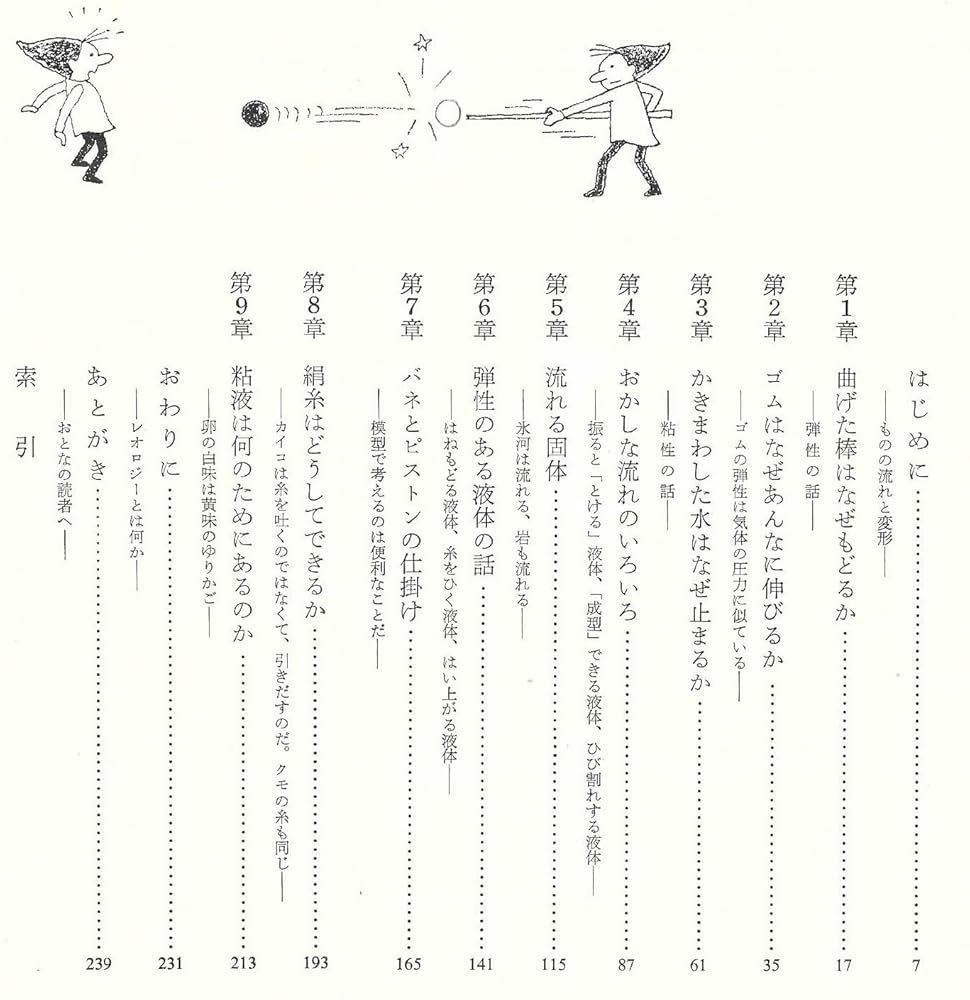 はじめに……7
――ものの流れと変形――
第1章 曲げた棒はなぜもどるか……17
――弾性の話――
第2章 ゴムはなぜあんなに伸びるか……35
――ゴムの弾性は気体の圧力に似ている――
第3章 かきまわした水はなぜ止まるか……61
――粘性の話――
第4章 おかしな流れのいろいろ……87
――振ると「とける」液体、「成型」できる液体、ひび割れする液体――
第5章 流れる固体……115
――氷河は流れる、岩も流れる――
第6章 弾性のある液体の話……141
――はねもどる液体、糸をひく液体、はい上がる液体――
第7章 バネとピストンの仕掛け……165
――模型で考えるのは便利なことだ――
第8章 絹糸はどうしてできるか……193
――カイコは糸を吐くのではなくて、引きだすのだ。クモの糸も同じ――
第9章 粘液は何のためにあるのか……213
――卵の白味は黄味のゆりかご――
おわりに……231
――レオロジーとは何か――
あとがき……239
――おとなの読者へ――
索引